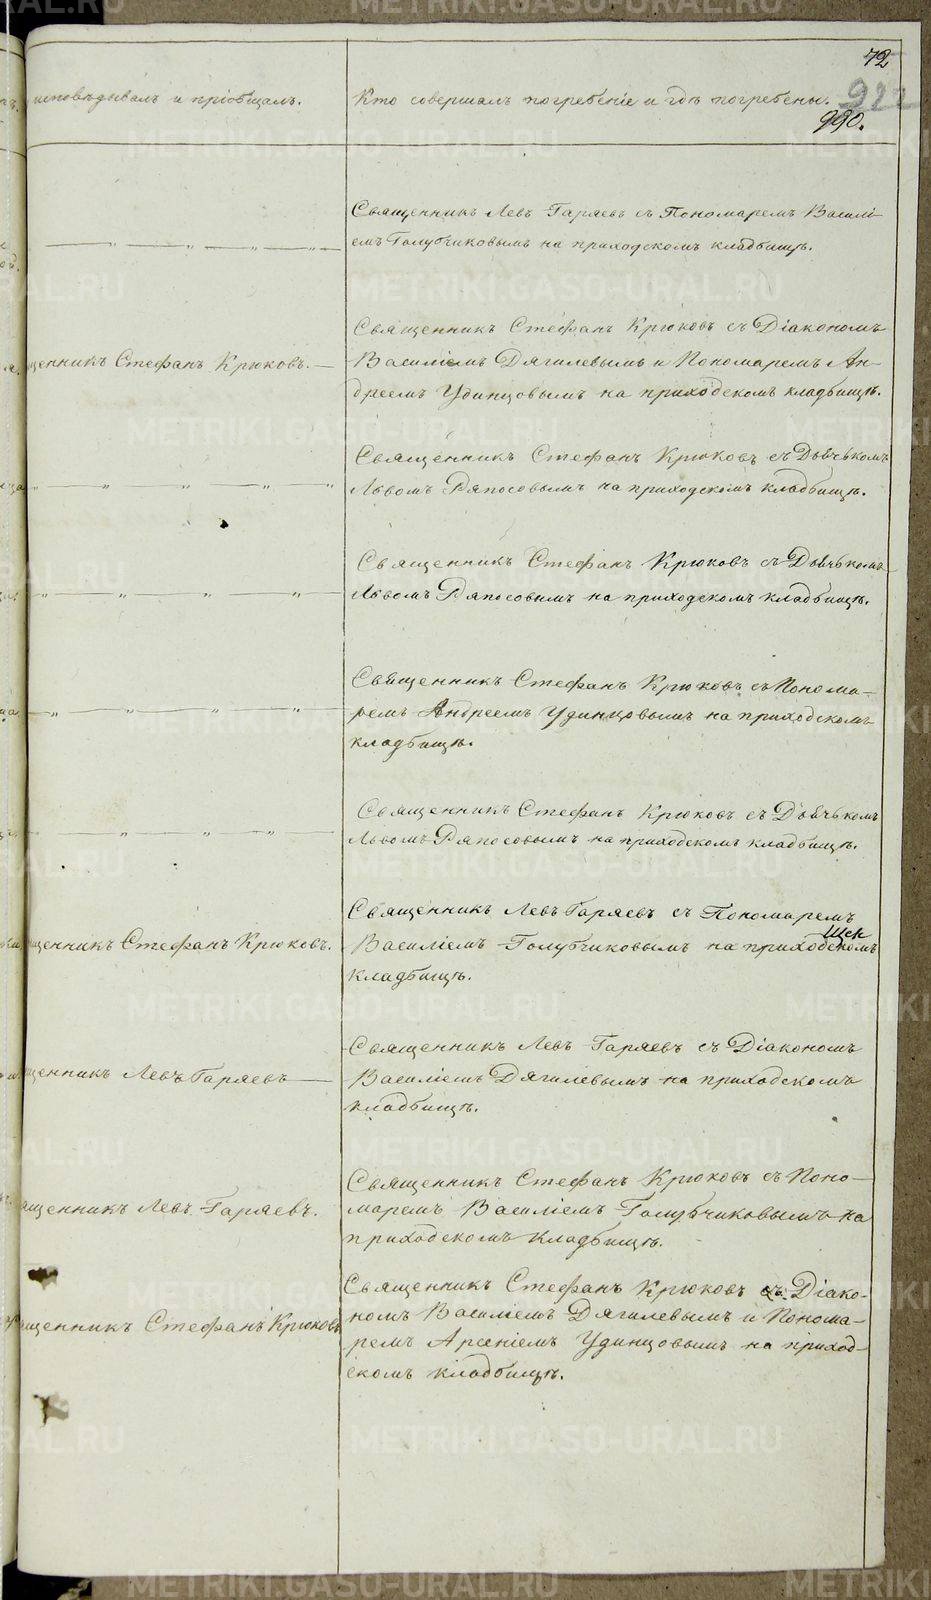 72
922
990.
исповѣдывалъ и пріобщалъ.
Кто совершалъ погребеніе и гдѣ погребены.
Священникъ Левъ Гаряевъ съ Пономаремъ Василі-
емъ Голубчиковымъ на приходскомъ кладбищѣ.
щенникъ Стефанъ Крюковъ.
Священникъ Стефанъ Крюковъ съ Діакономъ
Василіемъ Дягилевымъ и Пономаремъ Ан-
дреемъ Удинцовымъ на приходскомъ кладбищѣ.
Священникъ Стефанъ Крюковъ съ Дьячькомъ
Львомъ Ряпосовымъ на приходскомъ кладбищѣ.
Священникъ Стефанъ Крюковъ съ Дьячькомъ
Львомъ Ряпосовымъ на приходскомъ кладбищѣ.
Священникъ Стефанъ Крюковъ съ Понома-
ремъ Андреемъ Удинцовымъ на приходскомъ
кладбищѣ.
Священникъ Стефанъ Крюковъ съ Дьячькомъ
Львомъ Ряпосовымъ на приходскомъ кладбищѣ.
щенникъ Стефанъ Крюковъ.
Священникъ Левъ Гаряевъ съ Пономаремъ
Василіемъ Голубчиковымъ на приходскомъ
кладбищѣ.
щенникъ Левъ Гаряевъ
Священникъ Левъ Гаряевъ съ Діакономъ
Василіемъ Дягилевымъ на приходскомъ
кладбищѣ.
ященникъ Левъ Гаряевъ.
Священникъ Стефанъ Крюковъ съ Поно-
маремъ Василіемъ Голубчиковымъ на
приходскомъ кладбищѣ.
ященникъ Стефанъ Крюковъ
Священникъ Стефанъ Крюковъ съ Діако-
номъ Василіемъ Дягилевымъ и Понома-
ремъ Арсеніемъ Удинцовымъ на приход-
скомъ кладбищѣ.
METRIKI.GASO-URAL.RU